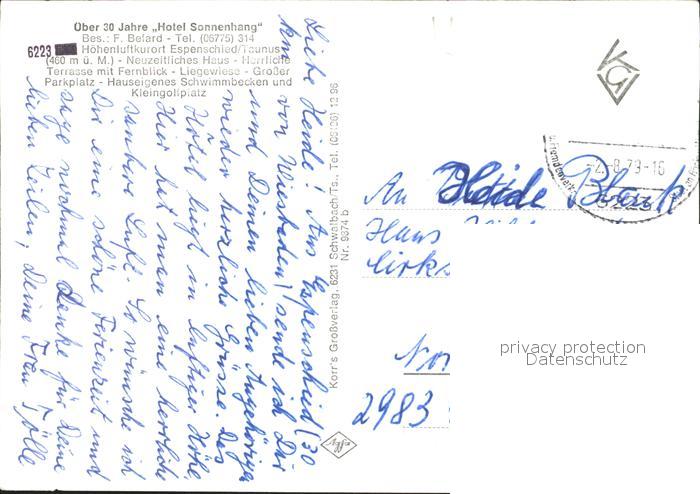 Über 30 Jahre „Hotel Sonnenhang"
Bes.: F. Befard - Tel. (06775) 314
6223 Höhenluftkurort Espenschied/Taunus
(460 m ü. M.) - Neuzeitliches Haus - Herrliche
Terrasse mit Fernblick - Liegewiese - Großer
Parkplatz - Hauseigenes Schwimmbecken und
Kleingolfplatz
Liebe Heide! Aus Espenschied (30
km von Wiesbaden) sende ich Dir
und Deinen lieben Angehörigen
wieder herzliche Grüsse. Das
Hotel liegt in luftiger Höhe.
Hier hat man eine herrliche
saubere Luft. So wünsche ich
Dir eine schöne Ferienzeit und
sage nochmal Danke für Deine
lieben Zeilen, Deine Frau Tölle
Korr's Großverlag, 6231 Schwalbach/Ts., Tel. (06196) 12 96
Nr. 9374 b
Agfa
KG
-2.-8.79-16
An Heide
Haus
Cirks
Nor
2983
privacy protection
Datenschutz